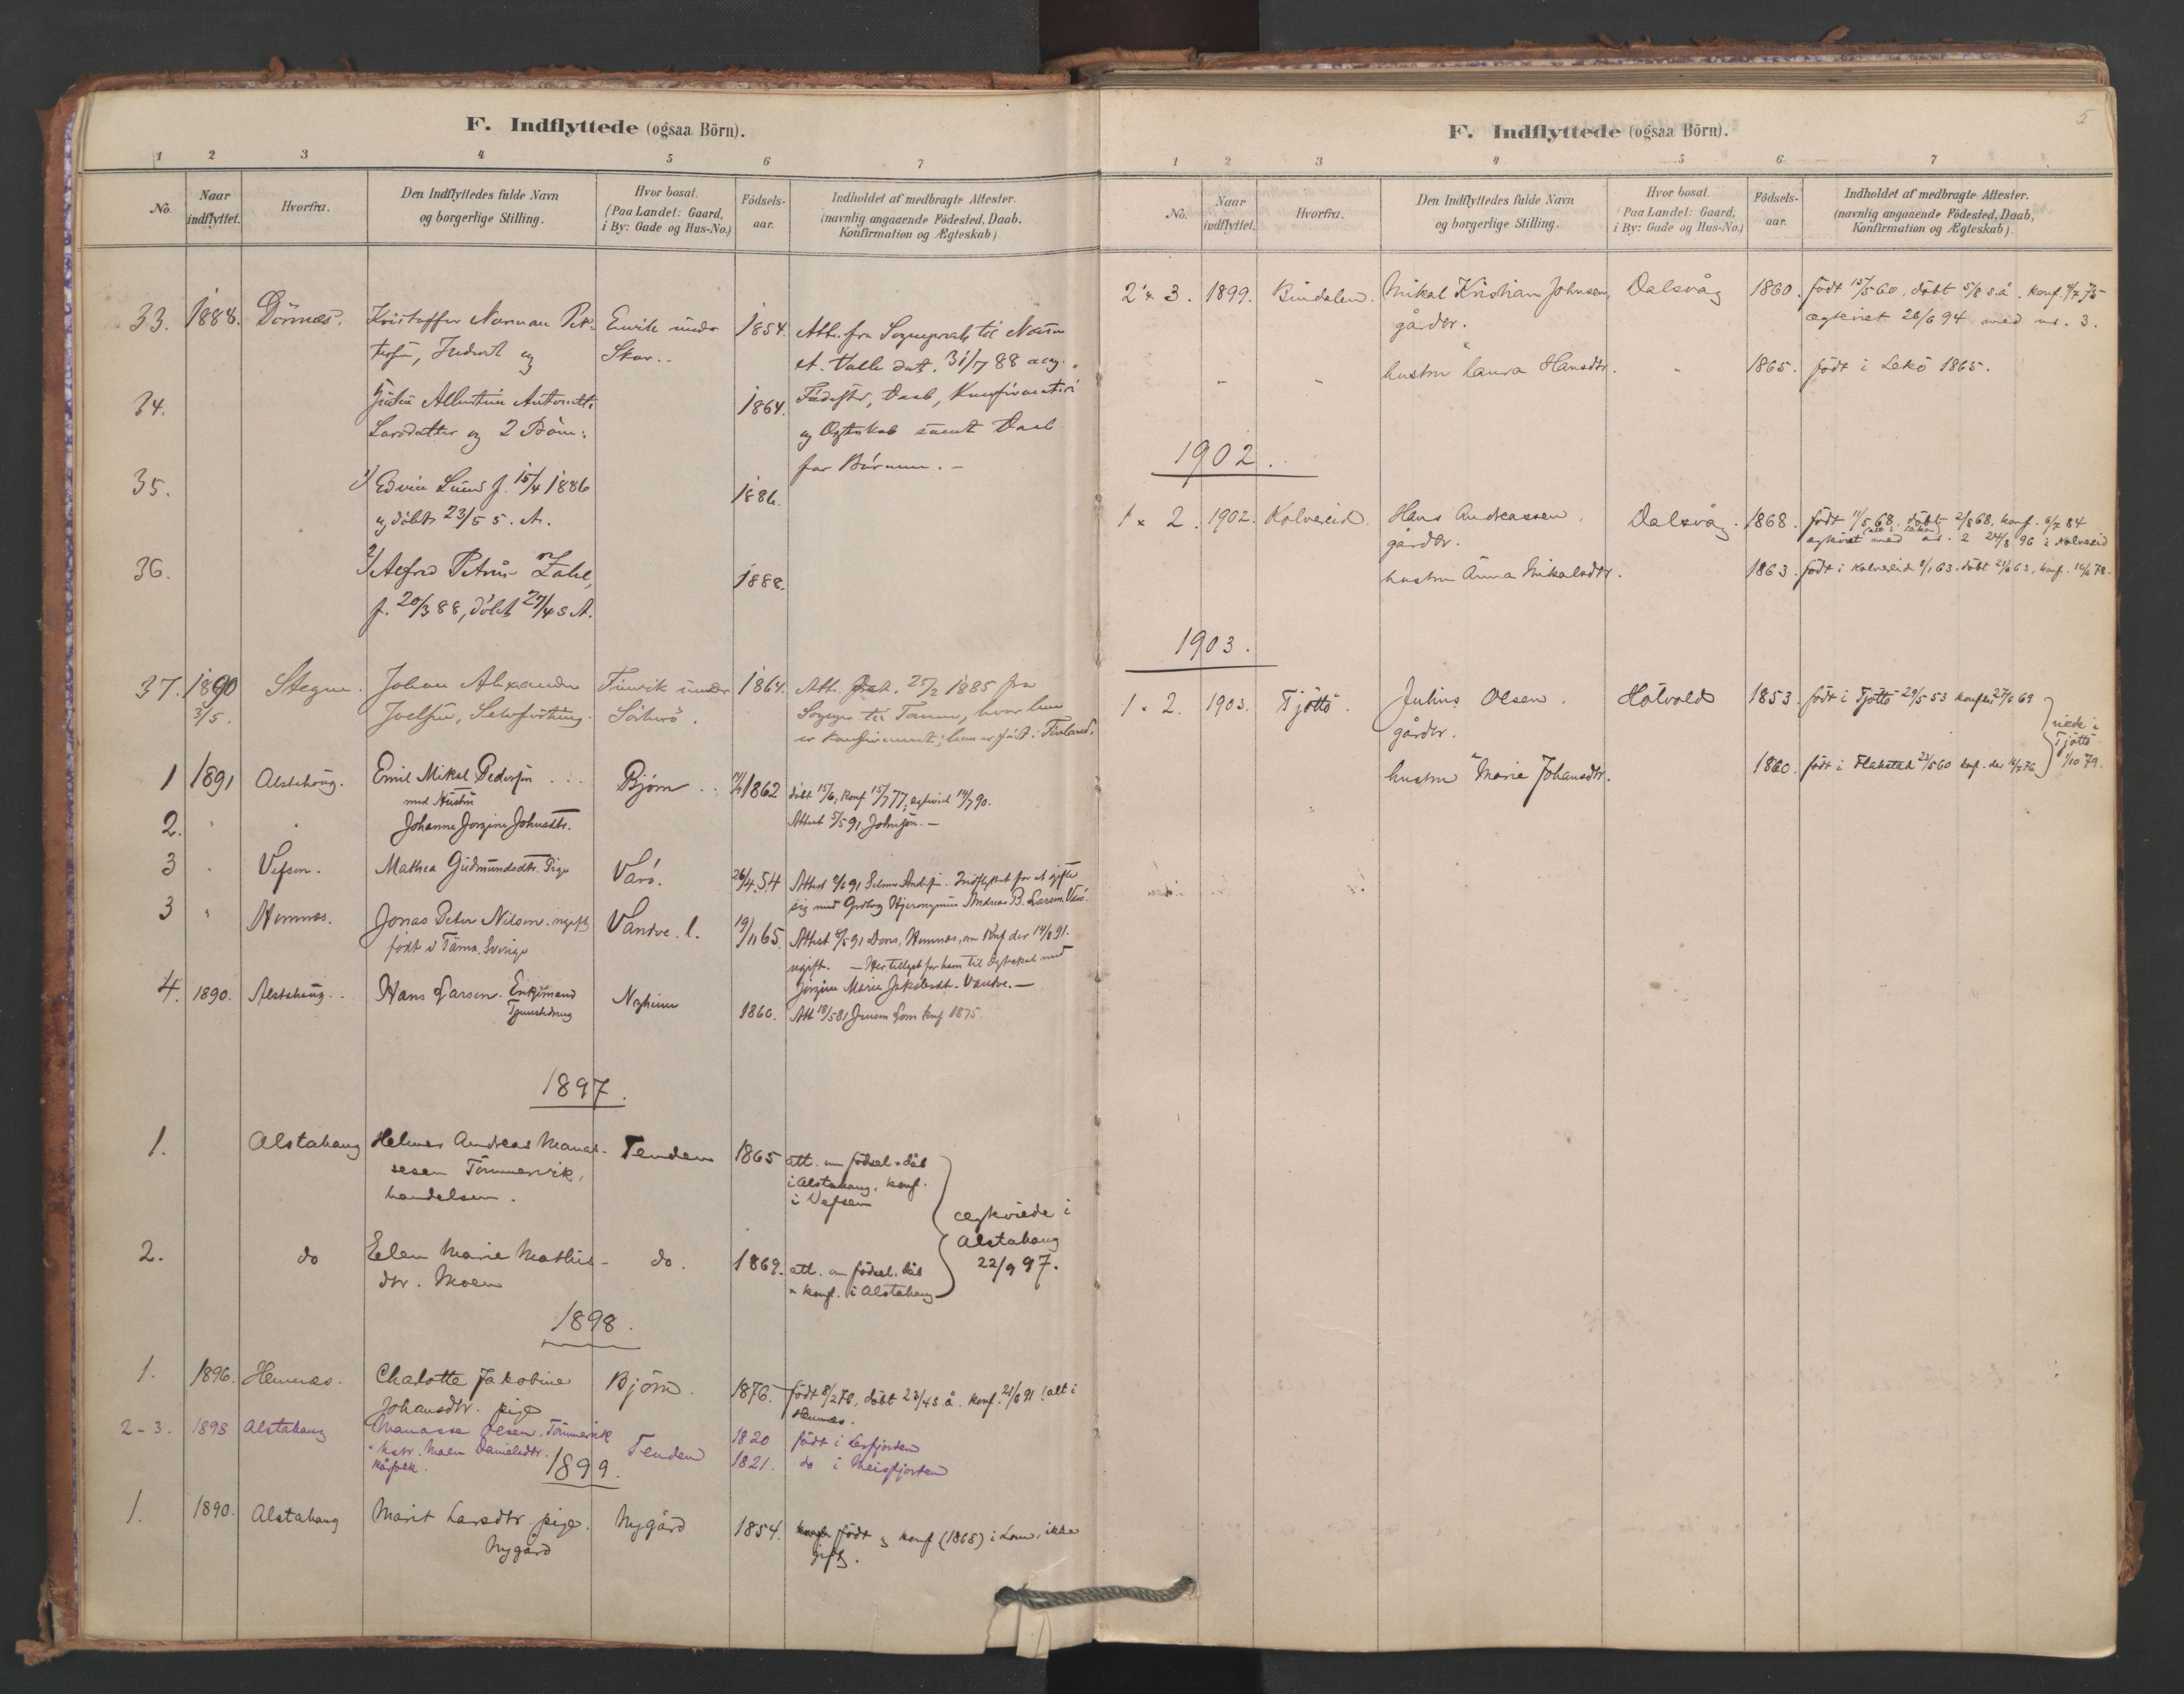 F. Indflyttede (ogsaa Börn).
1 2 3 4 5 6 7
No. Naar indflyttet. Hvorfra. Den Indflyttedes fulde Navn og borgerlige Stilling. Hvor bosat. (Paa Landet: Gaard, i By: Gade og Hus-No.) Födsels-aar. Indholdet af medbragte Attester. (navnlig angaaende Födested, Daab, Konfirmation og Ægteskab).
33. 1888. Dönnæs. Kristoffer Norman Pet- 1854. Att. fra Sognepræst til
tersen, Inderst og Skar. dat. 31/7 88 ang.
34. Larsdatter og 2 Börn: 1864. Födested, Daab, Konfirmation
og Ægteskab samt Daab
for Börnene. —
35. 1) Edvin f. 15/4 1886 1886.
og döbt 23/5 s. A.
36. 2) Alfred Petrus 1888.
f. 20/3 88, döbt 27/4 s A.
37. 1890 Johan Alexander under 1864. Att. dat. 25/2 1885 fra
3/5. Sognepr. til hvor han
er konfirmeret; han er födt i
1 1891 Alstahoug. Emil Mikal Pedersen Bjørn 1862 döbt 15/6, konf 15/7 77, egteviet 14/7 90.
med Hustru
2. " Johanne Jorgine Johnsdtr. Attest 5/5 91, Johnson. —
3 " Vefsen. Mathea Gudmundsdtr. Pige Varö. 26/4 54 Attest 2/6 91 Indflyttet for at gifte
sig med Hjeronymus Andreas B. Larsen Varö.
3 " Hemnes. Jonas Peter Nilsen. ugift Vandve. l. 19/11 65. Attest 91 Dons, Hemnes, om Konf der 14/8 91.
födt i Tärna, Sverige ugift. — til Egteskab med
Jorgine Marie Jakobsdtr. Vandve. —
4. 1890. Alstahoug. Hans Larsen. Enkemand 1860. Att 18/5 81 Lom konf 1875.
1897.
1. Alstahaug Helmer Andreas Manas- Tenden 1865 att. om födsel + dåb
sesen Tömmervik, i Alstahaug, konf.
handelsm. i Vefsen
ægteviede i
Alstahaug
22/9 97.
2. do Ellen Marie Mathis- do. 1869. att. om födsel, dåb
dtr. Moen + konf. i Alstahaug
1898.
1. 1896. Hemnæs. Chalotte Jakobine Bjørn. 1876. födt 8/2 76, döbt 23/4 s. å. konf. 21/6 91 (alt i
Johansdtr. pige Hemnæs.
2-3. 1898 Alstahaug Manasse Olsen, Tömmervik Tenden 1820 födt i Leirfjorden
+ hstr. Maren Danielsdtr. 1821. do i Meisfjorden
kårfolk.
1899.
1. 1890. Alstahaug Marit Larsdtr. pige. Nygård 1854. födt og konf (1868) i Lom, ikke
Nygård gift.
5
F. Indflyttede (ogsaa Börn).
1 2 3 4 5 6 7
No. Naar indflyttet. Hvorfra. Den Indflyttedes fulde Navn og borgerlige Stilling. Hvor bosat. (Paa Landet: Gaard, i By: Gade og Hus-No.) Födsels-aar. Indholdet af medbragte Attester. (navnlig angaaende Födested, Daab, Konfirmation og Ægteskab).
2 + 3. 1899. Bindalen. Mikal Kristian Johnsen, Dalsvåg 1860. födt 15/5 60, döbt 5/8 s.å. konf. 4/7 75
gårdbr. ægteviet 26/6 94 med nr. 3.
" " hustru Laura Hansdtr. " 1865. födt i Lekö 1865.
1902.
1 + 2. 1902. Kolvereid. Hans Andreassen, Dalsvåg. 1868. födt 11/5 68, döbt 2/8 68, konf. 6/7 84
(alt i Lekø)
gårdbr. ægteviet med nr. 2 24/8 96 i Kolvereid
hustru Anna Mikalsdtr. 1863. födt i Kolvereid 8/1 63, döbt 21/6 63, konf. 16/6 78.
1903.
1 + 2. 1903. Tjöttö. Julius Olsen. Holvold 1853. födt i Tjöttö 29/5 53 konf 27/6 69
gårdbr. viede i
Tjöttö
1/10 79.
hustru Marie Johansdtr. 1860. födt i Flakstad 23/5 60 konf. der 16/7 76